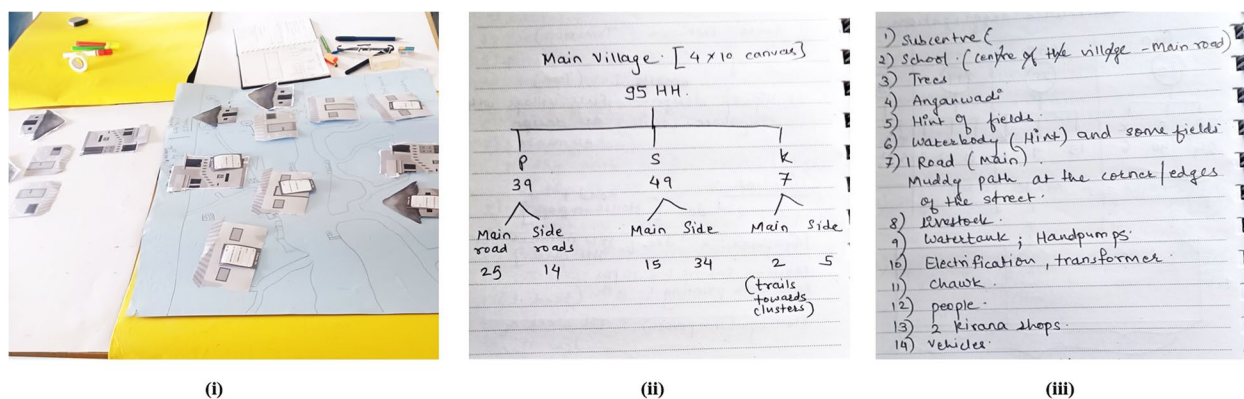 Main Village. [4 x 10 canvas]
95 HH.
P S K
39 49 7
Main road Side roads Main Side Main Side
25 14 15 34 2 5
(trails
towards
clusters)
1) Subcentre (
2) School. (centre of the village - Main road)
3) Trees
4) Anganwadi
5) Hint of fields.
6) Waterbody (Hint) and some fields
7) 1 Road (Main).
Muddy path at the corner/edges
of the street.
8) livestock.
9) Watertank ; Handpumps.
10) Electrification, transformer.
11) chawk.
12) people.
13) 2 kirana shops.
14) vehicles.
(i) (ii) (iii)